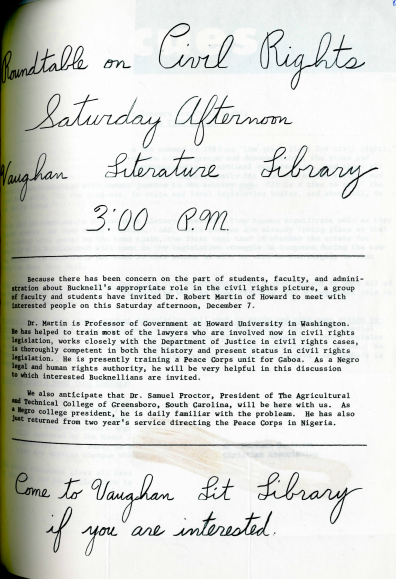 Roundtable on Civil Rights
Saturday Afternoon
Vaughan Literature Library
3:00 P.M.
Because there has been concern on the part of students, faculty, and admini-
stration about Bucknell's appropriate role in the civil rights picture, a group
of faculty and students have invited Dr. Robert Martin of Howard to meet with
interested people on this Saturday afternoon, December 7.
Dr. Martin is Professor of Government at Howard University in Washington.
He has helped to train most of the lawyers who are involved now in civil rights
legislation, works closely with the Department of Justice in civil rights cases,
is thoroughly competent in both the history and present status in civil rights
legislation. He is presently training a Peace Corps unit for Gaboa. As a Negro
legal and human rights authority, he will be very helpful in this discussion
to which interested Bucknellians are invited.
We also anticipate that Dr. Samuel Proctor, President of The Agricultural
and Technical College of Greensboro, South Carolina, will be here with us. As
a Negro college president, he is daily familiar with the probleam. He has also
just returned from two year's service directing the Peace Corps in Nigeria.
Come to Vaughan Lit Library
if you are interested.